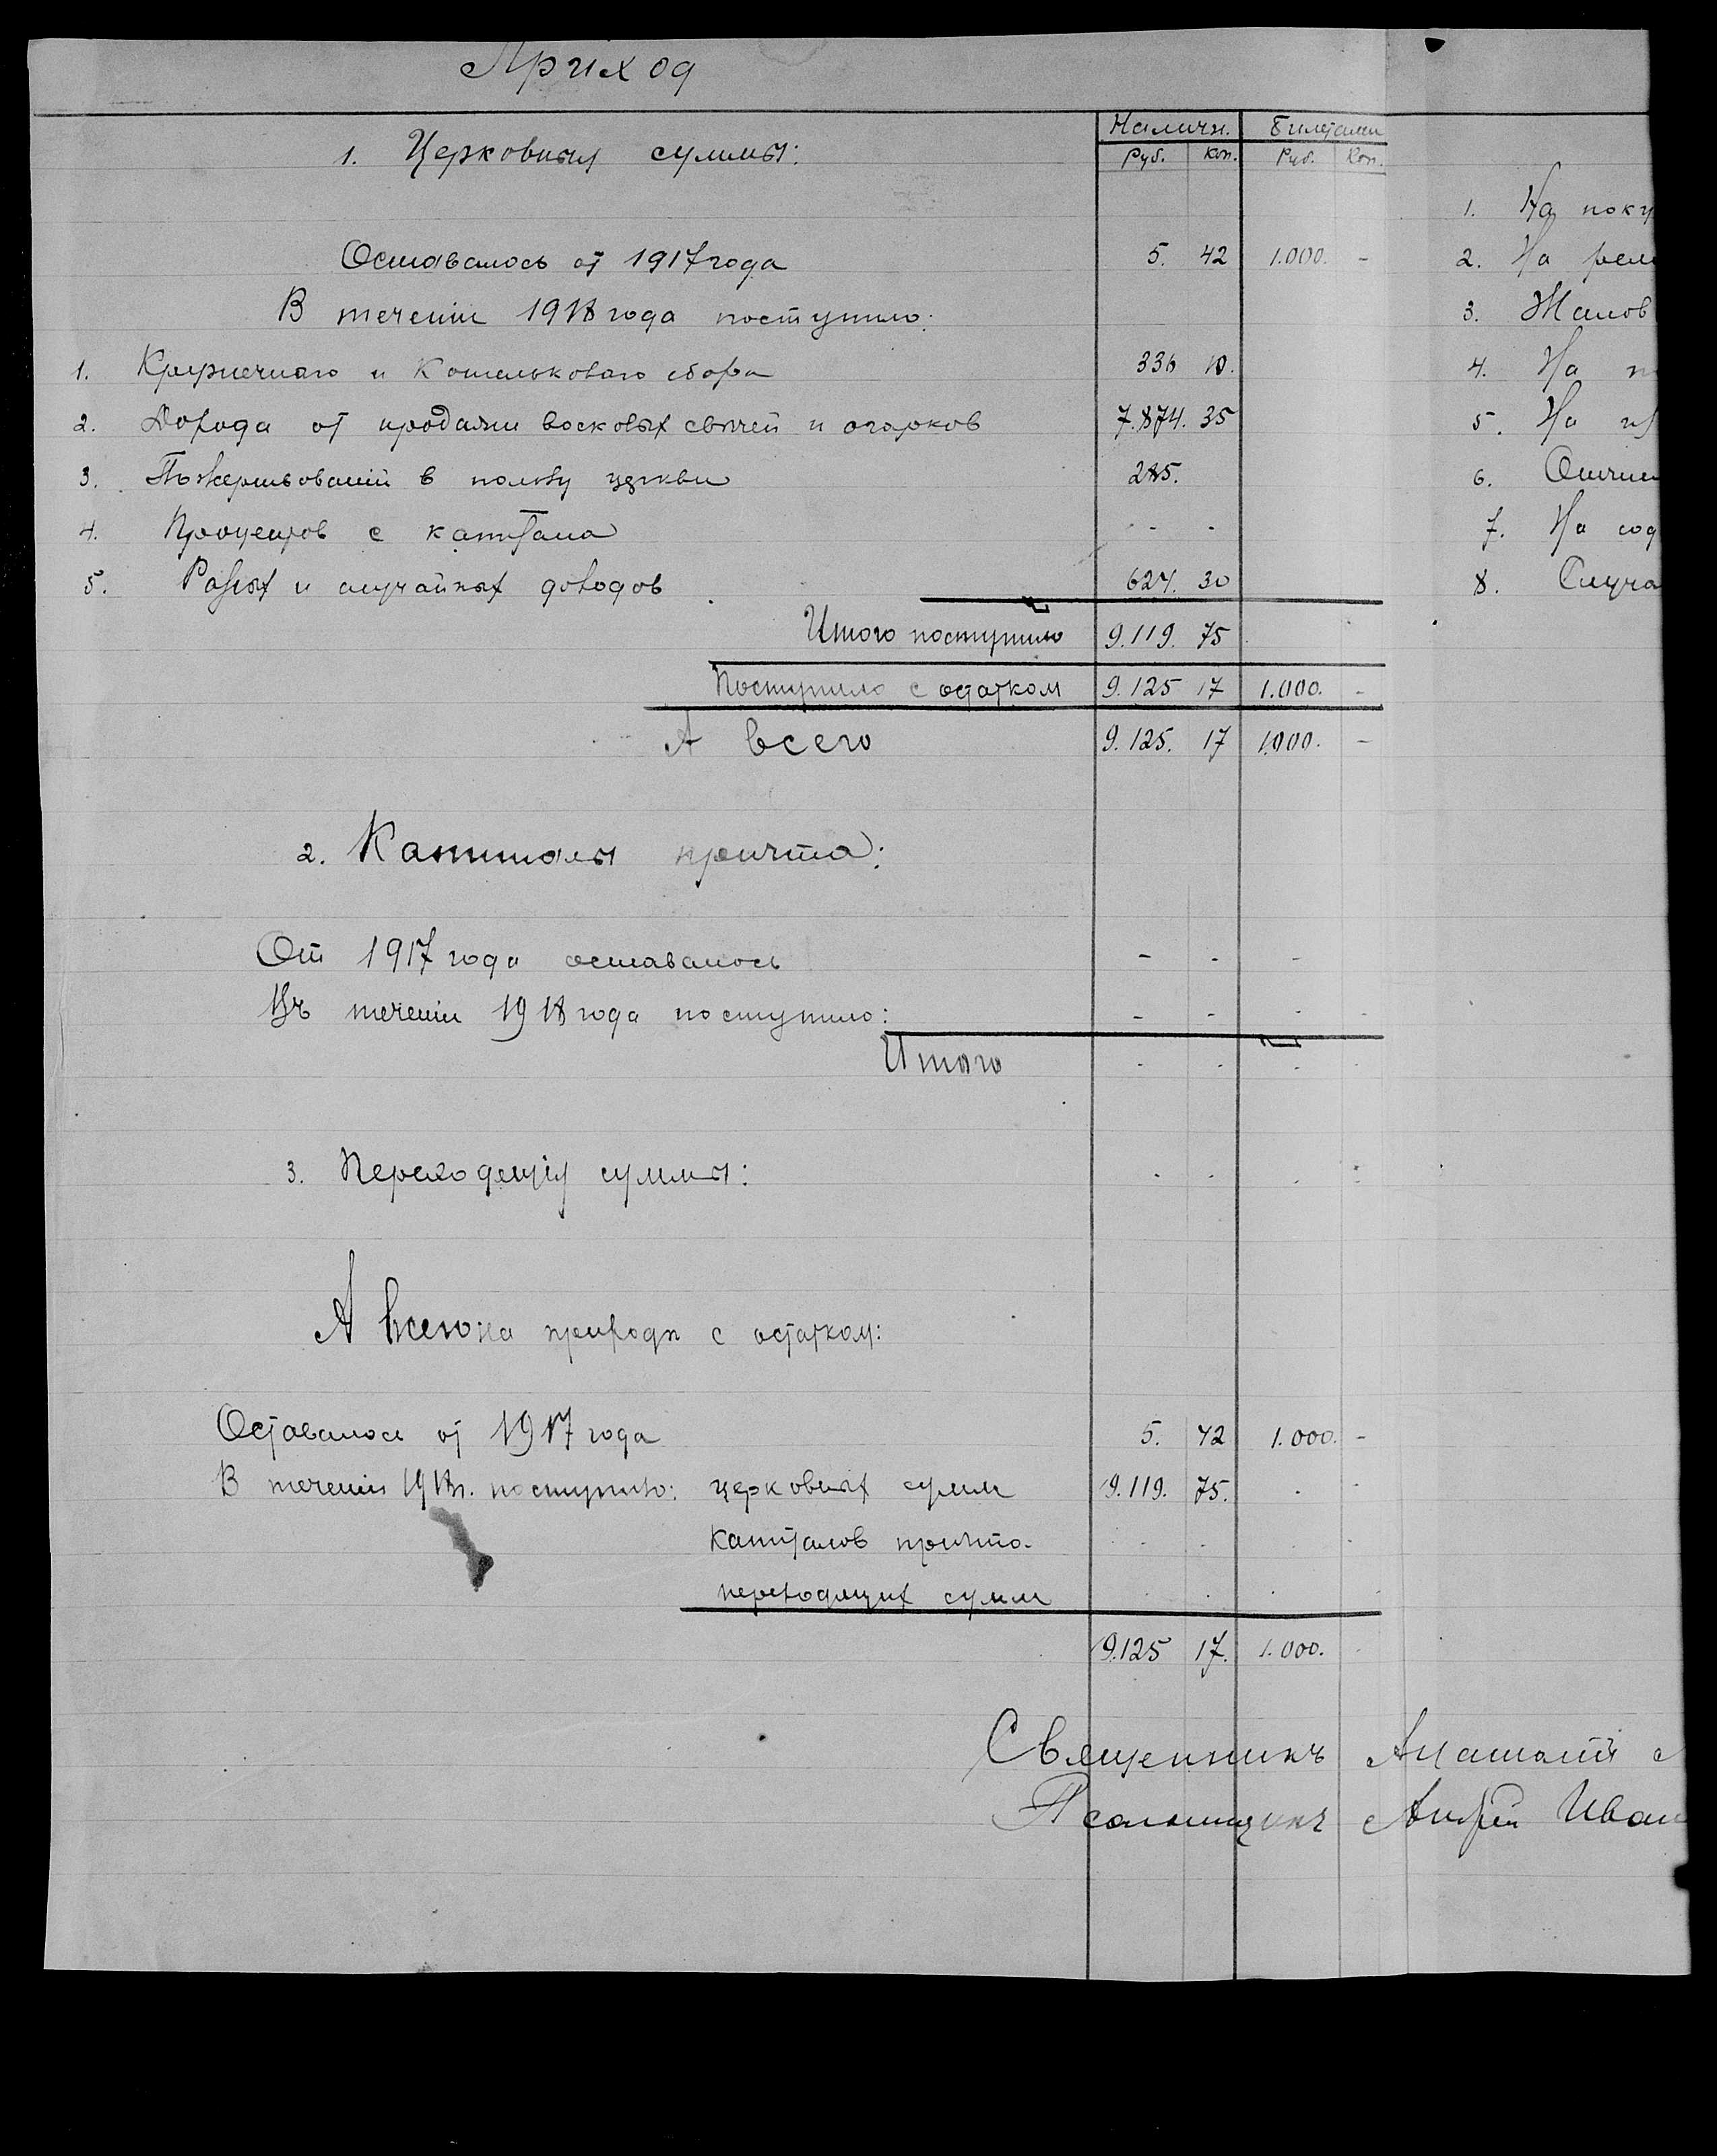 Приход
Наличн. Билетами
1. Церковныя суммы: Руб. Коп. Руб. Коп.
1. На поку
Оставалось от 1917 года 5. 42 1.000. -
2. На рем
В течении 1918 года поступило:
3. Жалов
1. Кружечнаго и Кошельковаго сбора 336 10.
4. На
2. Дохода от продажи восковых свечей и огарков 7.874. 35
5. На
3. Пожертвований в пользу церкви 285.
6. Отчис
4. Процентов с капитала - -
7. На сод
5. Разных и случайных доходов 624. 30
8. Случа
Итого поступило 9.119. 75
Поступило с остатком 9.125 17 1.000. -
А всего 9.125. 17 1.000. -
2. Капиталы причта:
От 1917 года оставалось - - -
Въ течении 1918 года поступило: - - - -
Итого - - -
3. Переходящия суммы:
А всего на приходе с остатком:
Оставалось от 1917 года 5. 42 1.000. -
В течении 1918 г. поступило: церковных сумм 9.119. 75.
капиталов причта.
переходящих сумм
9.125 17. 1.000.
Священникъ Анатолий
Псаломщикъ Андрей Иван